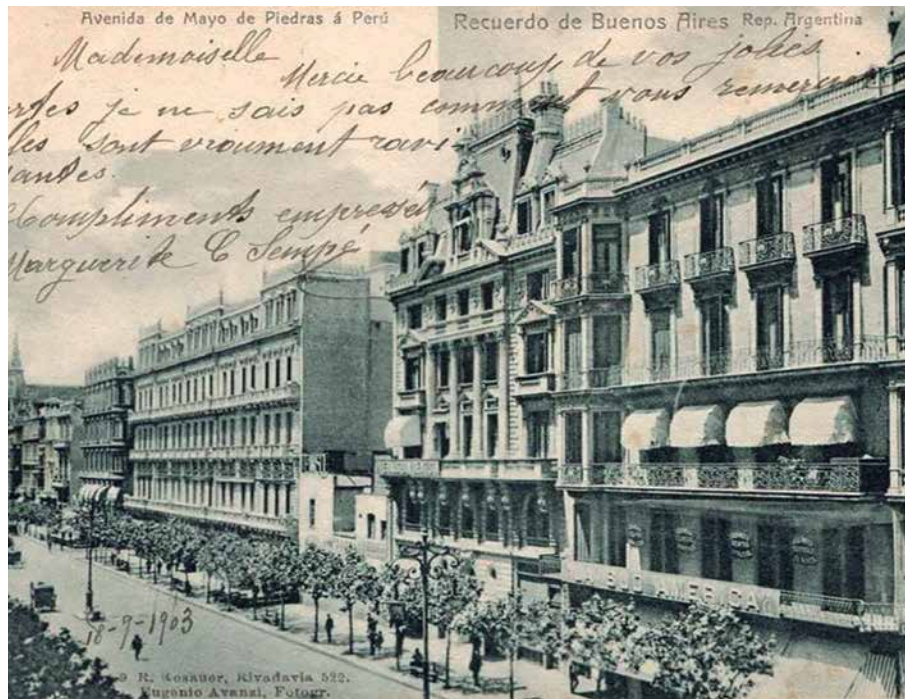 Avenida de Mayo de Piedras á Perú
Recuerdo de Buenos Aires Rep. Argentina
Mademoiselle
Mercie beaucoup de vos jolies
je ne sais pas comment vous
sont vraiment ravi-
Compliments
Marguerite C Sempé
18-9-1903
R. Rosauer, Rivadavia 522.
Eugenio Avanzi, Fotogr.